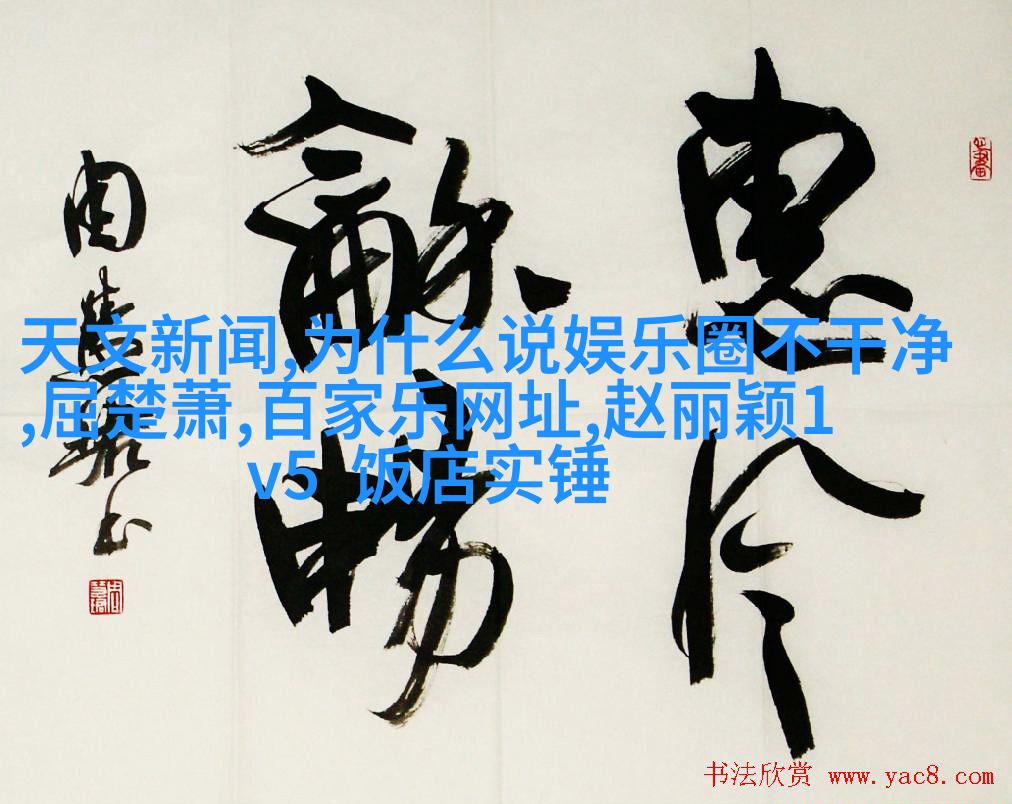 惠風
龢暢
周慧珺书
天文新闻,为什么说娱乐圈不干净
,屈楚萧,百家乐网址,赵丽颖1
v5 饭店实锤
书法欣赏 www.yac8.com